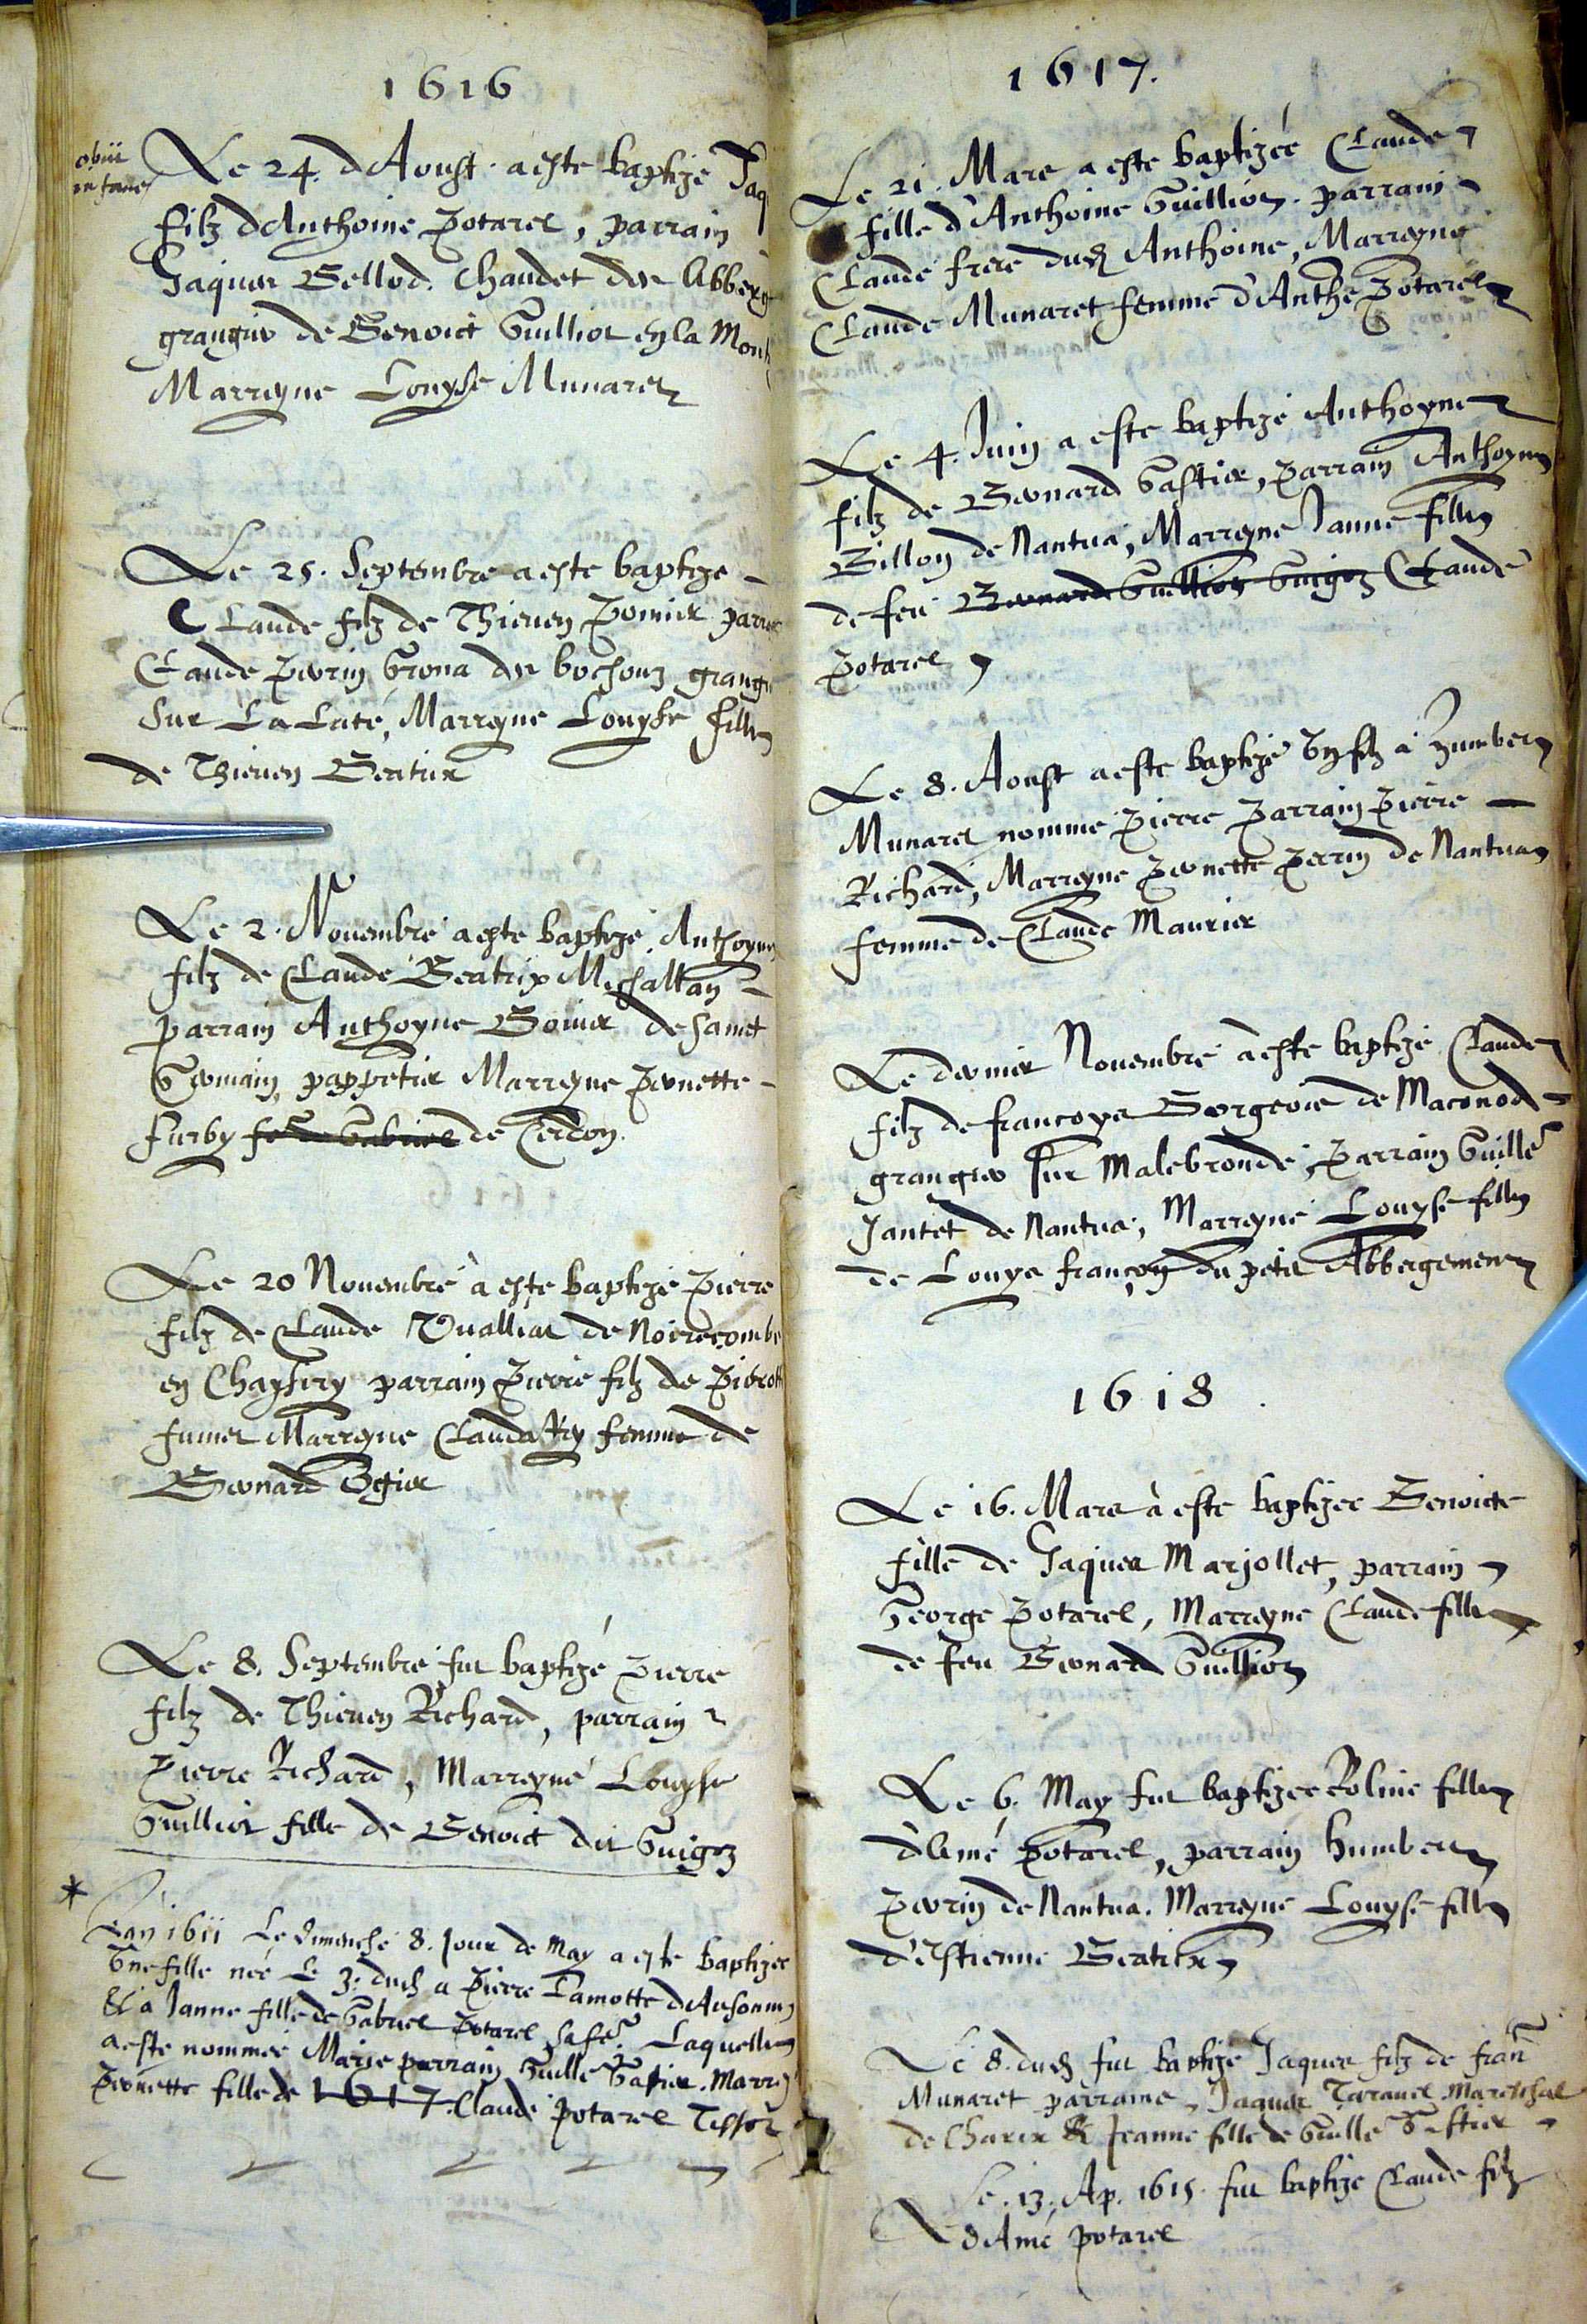 1616
obiit
Le 24. d Aoust. a este baptize Jaq
filz d Anthoine Potarel, parrain
Jaques Bellod. Chaudet des Abberg
grangier de Benoict Guilliot en la Mont
Marreyne Louyse Munaret
Le 25. Septembre a este baptize
Claude filz de Thieuen parra
Claude Perrin Grona des grangi
sur La Late, Marreyne Louyse fille
de Thieuen Beatrix
Le 2. Nouembre a este baptize Anthoyne
filz de Claude Beatrix Michallan
parrain Anthoyne Boinier de sainct
Germain, pappetier Marreyne Pernette
Furby fe de Gabriel de Cerdon.
Le 20 Nouembre à este baptize Pierre
filz de Claude Vualliat de Noirecombe
en Chaysery parrain Pierre filz de Pierre
fumet Marreyne Clauda Rey femme de
Bernard Ogier
Le 8. Septembre fut baptizé Pierre
filz de Thieuen Richard, parrain
Pierre Richard, Marreyne Louyse
Guilliot fille de Benoict dit Guigoz
* Lan 1611 Le dimenche 8. Jour de May a este baptizee
Une fille neé Le 3. dud a Pierre Lamotte
& à Janne fille de Gabriel Potarel sa fe Laquelle
a este nommeé Marie parrain Guille Gastier. Marrey
Pernette fille de 1617. Claude Potarel Tissot
1617.
Le 21. Mars a este baptizeé Claude
fille d'Anthoine Guilliot. parrain
Claude frere dud Anthoine, Marreyne
Claude Munaret femme d'Anthe Potarel
Le 4. Juin a este baptizé Anthoyne
filz de Bernard Gastier, Parrain Anthoyne
Billon de Nantua, Marreyne Janne fille
de feu Bernard Guilliot Guigoz Claude
Potarel
Le 8. Aoust a este baptizé Un filz à Humbert
Munaret nommé Pierre Parrain Pierre
Richard, Marreyne Pernette Perrin de Nantua
femme de Claude Maurier
Le dernier Nouembre à este baptizé Claude
filz de francoys Borgeois de Maconod
grangier sur Malebronde, Parrain Guille
Jantet de Nantua, Marreyne Louyse fille
de Louys françoy du petit Abbergement
1618.
Le 16. Mars à este baptizee Benoicte
fille de Jaques Marjollet, parrain
George Potarel, Marreyne Claude fille
de feu Bernard Guilliot
Le 6. May fut baptizee Roline fille
d'Amé Potarel, parrain Humbert
Perrin de Nantua. Marreyne Louyse fille
d'Estienne Beatrix
Le 8. dud fut baptize Jaques filz de fran
Munaret parraine, Jaques Tarauel Mareschal
de Charix & Jeanne fille de Guille Gastier
Le. 13. Ap. 1615. fut baptize Claude filz
d Amé potarel